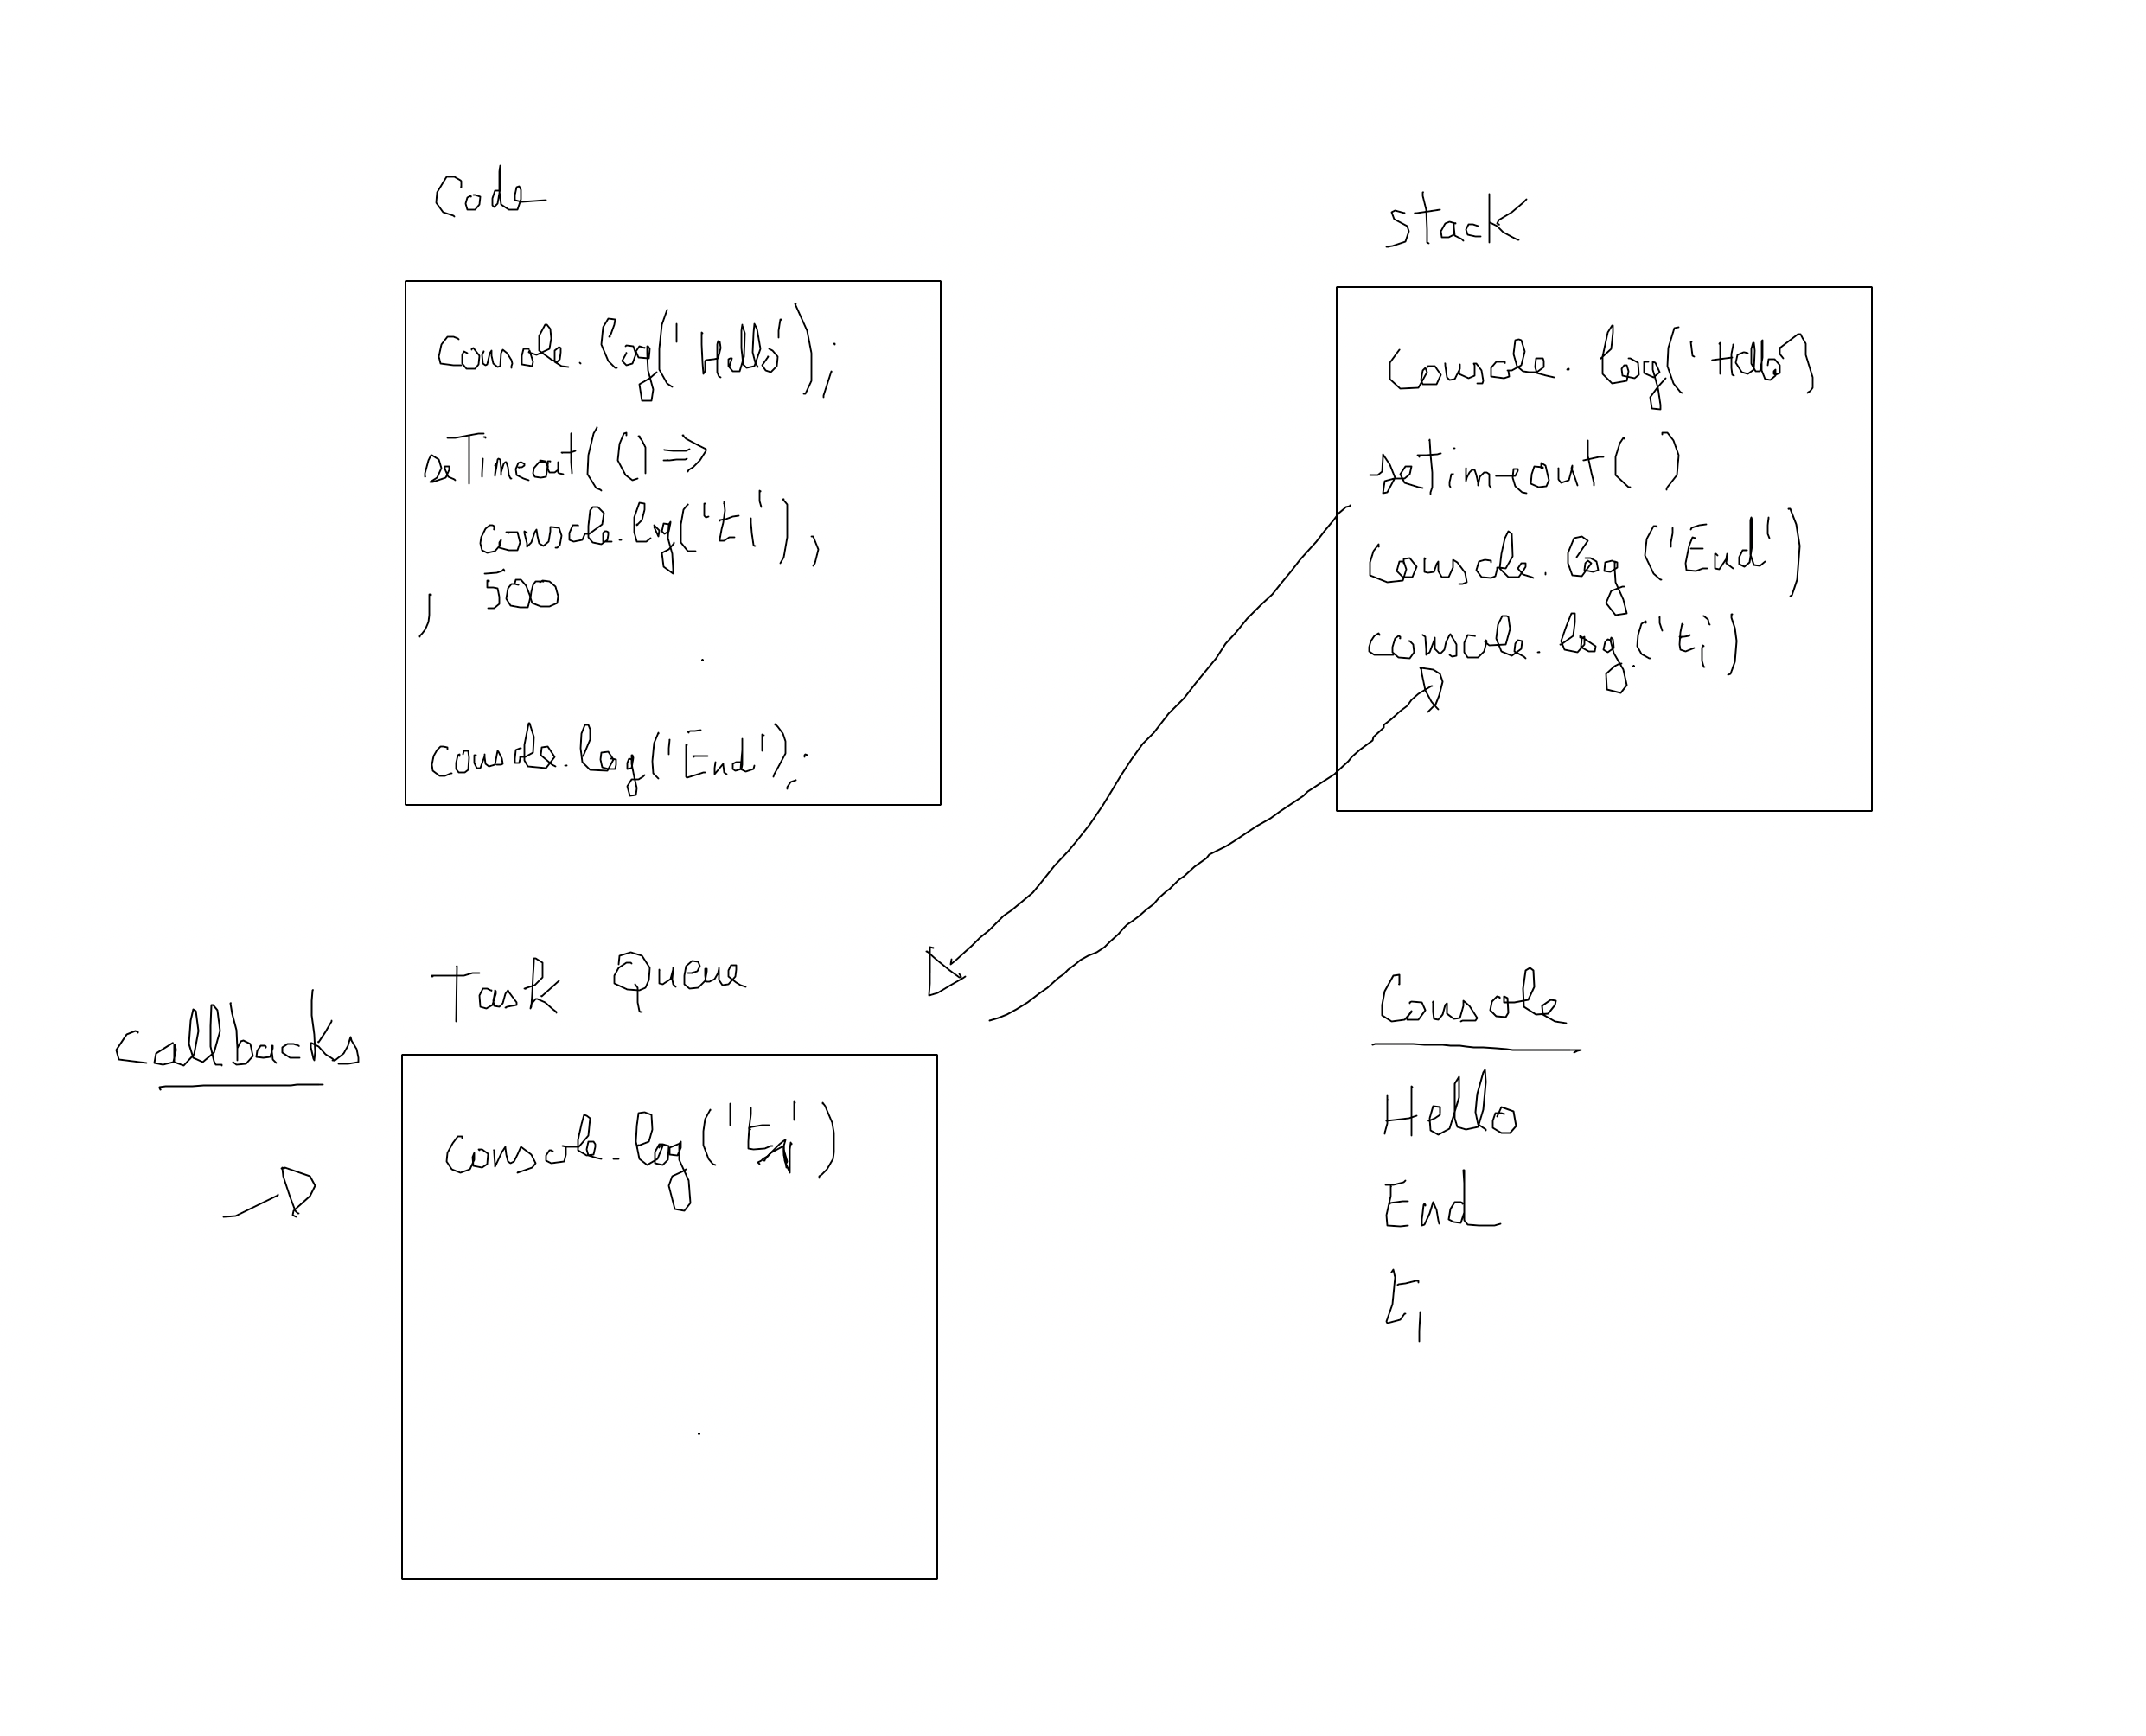 Code
console.log('Hello');
setTimeout(() =>
console.log('t1'),
500
)
console.log('End');
stack
console.log('Hello)
settimeout( )
console.log('End')
console.log('t1)
Task Queue
callbacks
console.log('t1')
Console
Hello
End
t1